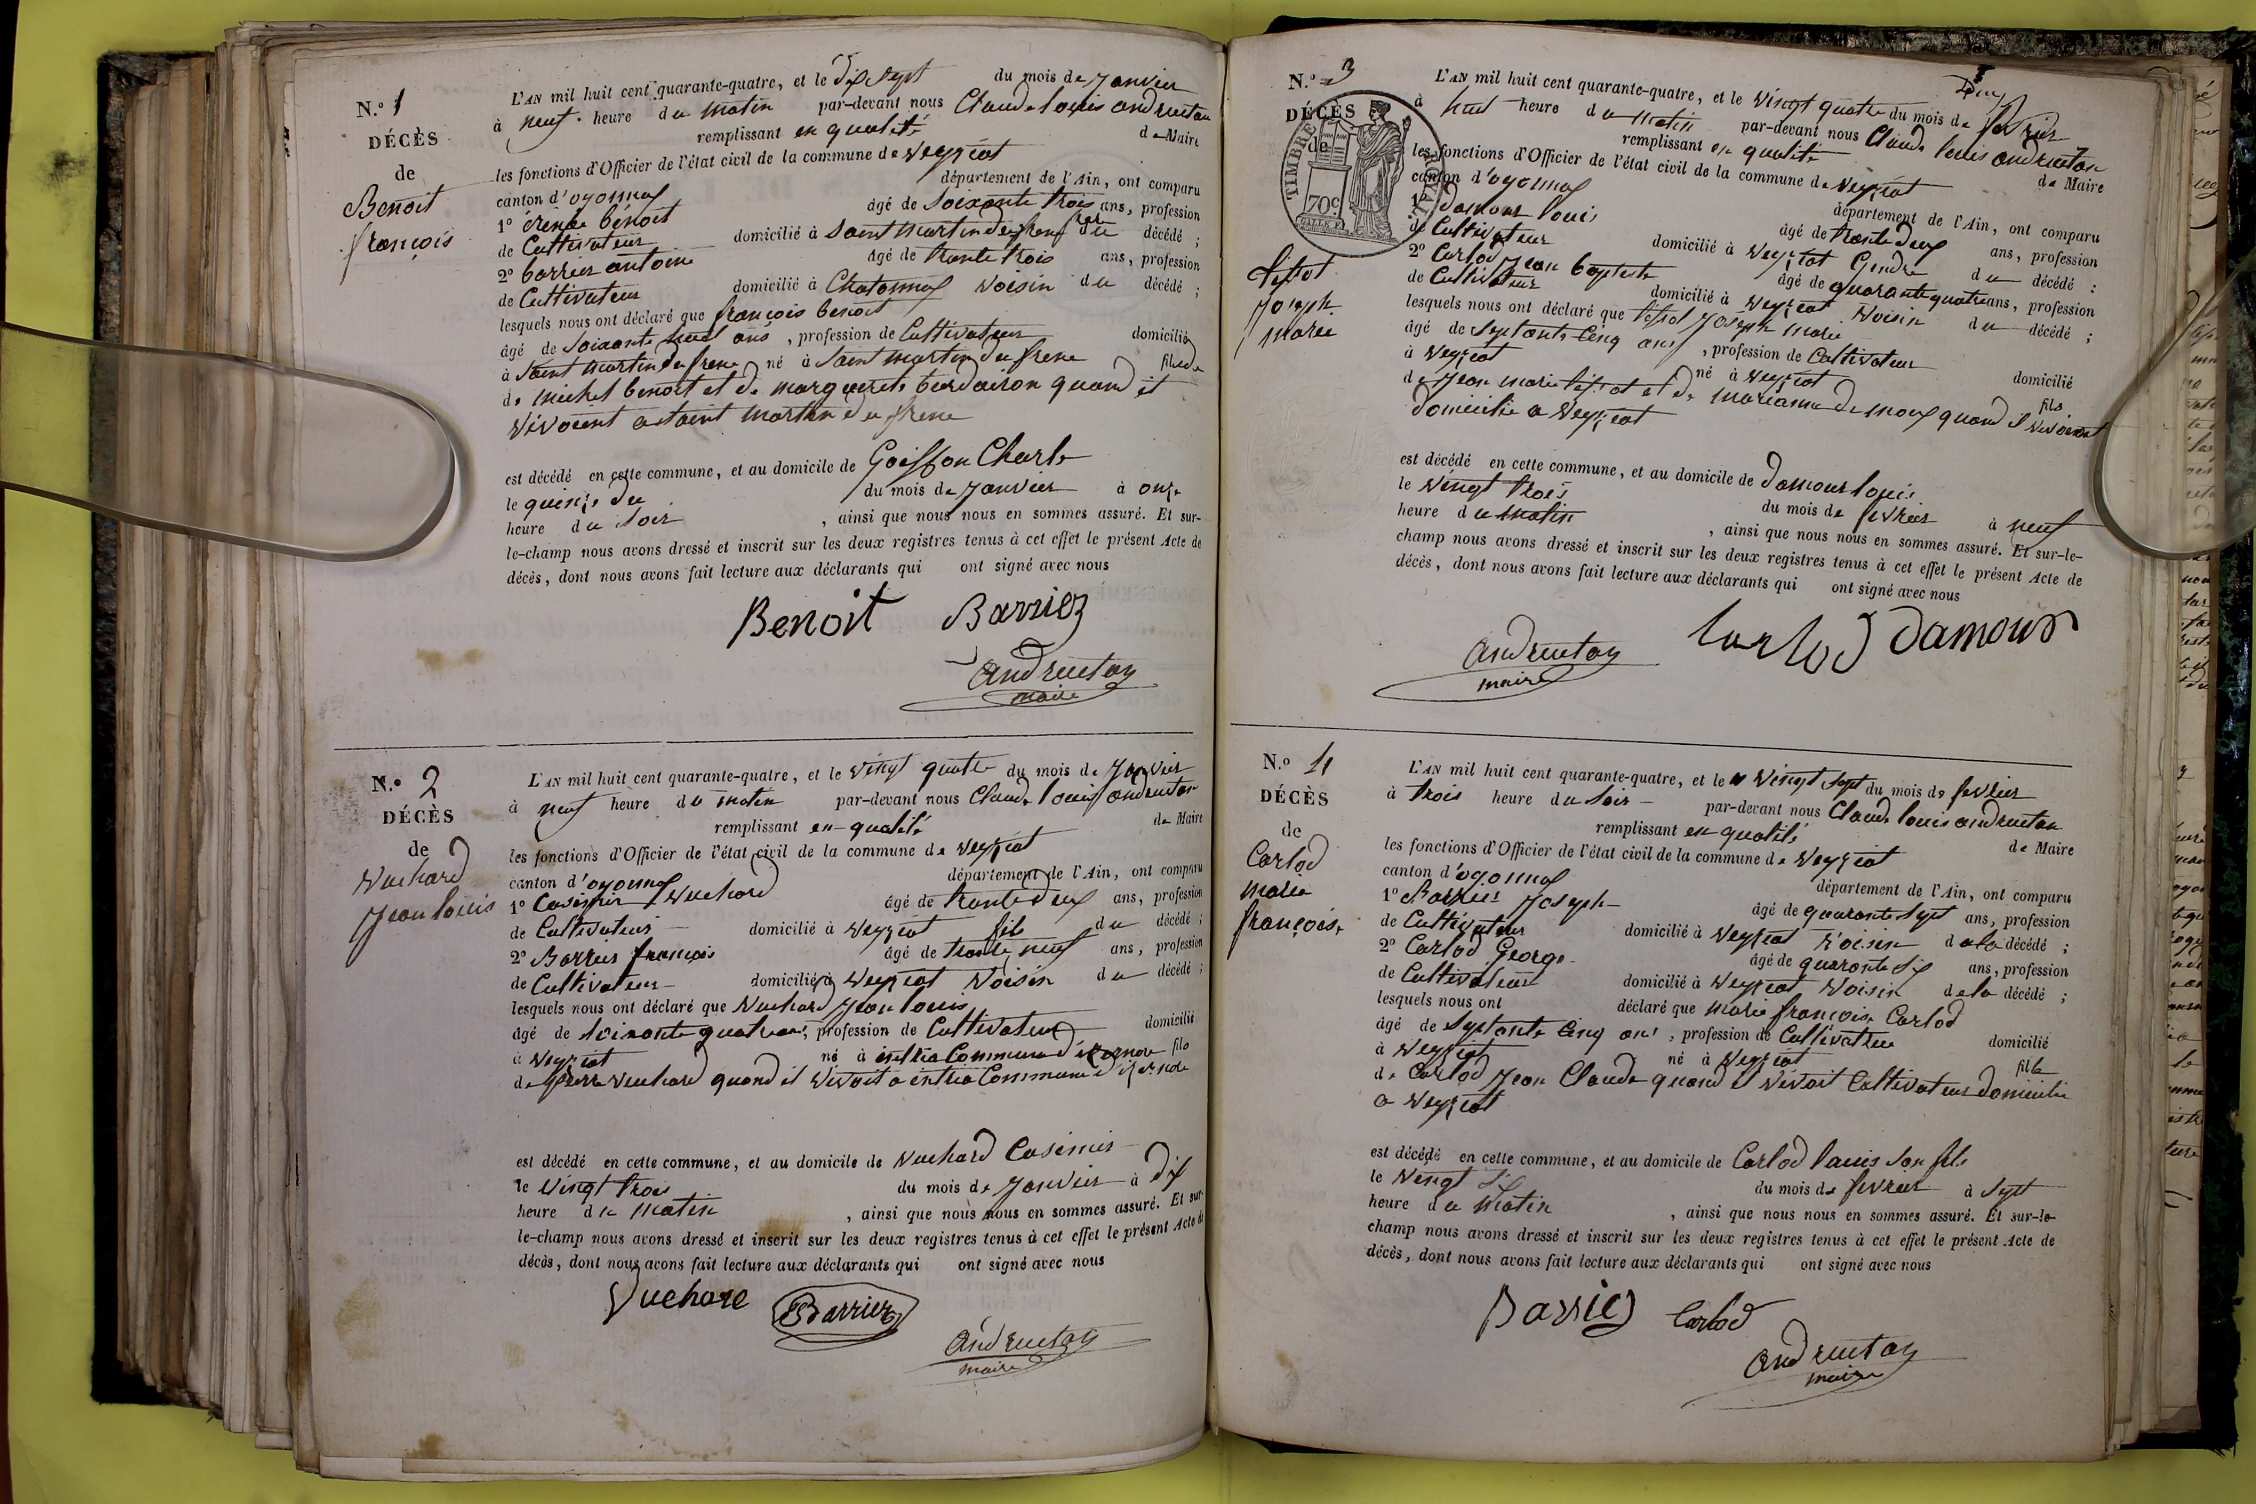 N.° 1
DÉCÈS
de
Benoit
françois
L'AN mil huit cent quarante-quatre, et le dix sept du mois de Janvier
à neuf heure du matin par-devant nous Claude louis andruetan
remplissant en qualité de Maire
les fonctions d'Officier de l'état civil de la commune de veyziat
canton d'oyonnax département de l'Ain, ont comparu
1° benoit âgé de soixante trois ans, profession
de Cultivateur domicilié à saint martin du frene du décédé ;
2° barrier antoine âgé de trante trois ans, profession
de Cultivateur domicilié à Chatonnax voisin du décédé ;
lesquels nous ont déclaré que françois benoit
âgé de soixante huit ans, profession de Cultivateur domicilié
à saint martin du frene né à saint martin du frene fils
de michel benoit et de marguerite quand il
vivoient a saint martin du frene
est décédé en cette commune, et au domicile de Goiffon Charle
le quinze du du mois de Janvier à onze
heure du soir, ainsi que nous nous en sommes assuré. Et sur-
le-champ nous avons dressé et inscrit sur les deux registres tenus à cet effet le présent Acte de
décès, dont nous avons fait lecture aux déclarants qui ont signé avec nous
Benoit Barrier
andruetan
maire
N.° 2
DÉCÈS
de
Vuchard
Jean louis
L'AN mil huit cent quarante-quatre, et le vingt quatre du mois de Janvier
à neuf heure du matin par-devant nous Claude louis andruetan
remplissant en qualité de Maire
les fonctions d'Officier de l'état civil de la commune de veyziat
canton d'oyonnax département de l'Ain, ont comparu
1° Casimir Vuchard âgé de trante deux ans, profession
de Cultivateur domicilié à veyziat fils du décédé ;
2° Barrier françois âgé de trante neuf ans, profession
de Cultivateur domicilié à veyziat voisin du décédé ;
lesquels nous ont déclaré que Vuchard Jean louis
âgé de soixante quatre ans, profession de Cultivateur domicilié
à veyziat né à intria Commune d'izernore fils
de pierre vuchard quand il vivoit a intria Commune d'izernore
est décédé en cette commune, et au domicile de Vuchard Casimir
le vingt trois du mois de Janvier à dix
heure du matin, ainsi que nous nous en sommes assuré. Et sur-
le-champ nous avons dressé et inscrit sur les deux registres tenus à cet effet le présent Acte de
décès, dont nous avons fait lecture aux déclarants qui ont signé avec nous
Vuchard Barrier
andruetan
maire
N.° 3
DÉCÈS
de
TIMBRE ROYAL
70c
Joseph
marie
L'AN mil huit cent quarante-quatre, et le vingt quatre du mois de fevrier
à huit heure du matin par-devant nous Claude louis andruetan
remplissant en qualité de Maire
les fonctions d'Officier de l'état civil de la commune de veyziat
canton d'oyonnax département de l'Ain, ont comparu
1° damour louis âgé de trante deux ans, profession
de Cultivateur domicilié à veyziat Gendre du décédé ;
2° Carlod Jean baptiste âgé de quarante quatre ans, profession
de Cultivateur domicilié à veyziat voisin du décédé ;
lesquels nous ont déclaré que Joseph marie
âgé de septante cinq ans, profession de Cultivateur domicilié
à veyziat né à veyziat fils
de Jean marie et de marianne quand il vivoient
domicilie a veyziat
est décédé en cette commune, et au domicile de damour louis
le vingt trois du mois de fevrier à neuf
heure du matin, ainsi que nous nous en sommes assuré. Et sur-le-
champ nous avons dressé et inscrit sur les deux registres tenus à cet effet le présent Acte de
décès, dont nous avons fait lecture aux déclarants qui ont signé avec nous
andruetan Carlod damour
maire
N.° 4
DÉCÈS
de
Carlod
marie
françoise
L'AN mil huit cent quarante-quatre, et le vingt sept du mois de fevrier
à trois heure du soir par-devant nous Claude louis andruetan
remplissant en qualité de Maire
les fonctions d'Officier de l'état civil de la commune de veyziat
canton d'oyonnax département de l'Ain, ont comparu
1° Barrier Joseph âgé de quarante sept ans, profession
de Cultivateur domicilié à veyziat voisin de la décédé ;
2° Carlod George âgé de quarante six ans, profession
de Cultivateur domicilié à veyziat voisin de la décédé ;
lesquels nous ont déclaré que marie françoise Carlod
âgé de septante cinq ans, profession de Cultivatrice domicilié
à veyziat né à veyziat fille
de Carlod Jean Claude quand il vivoit Cultivateur domicilie
a veyziat
est décédé en cette commune, et au domicile de Carlod louis son fils
le vingt six du mois de fevrier à sept
heure du matin, ainsi que nous nous en sommes assuré. Et sur-le-
champ nous avons dressé et inscrit sur les deux registres tenus à cet effet le présent Acte de
décès, dont nous avons fait lecture aux déclarants qui ont signé avec nous
Barrier Carlod
andruetan
maire